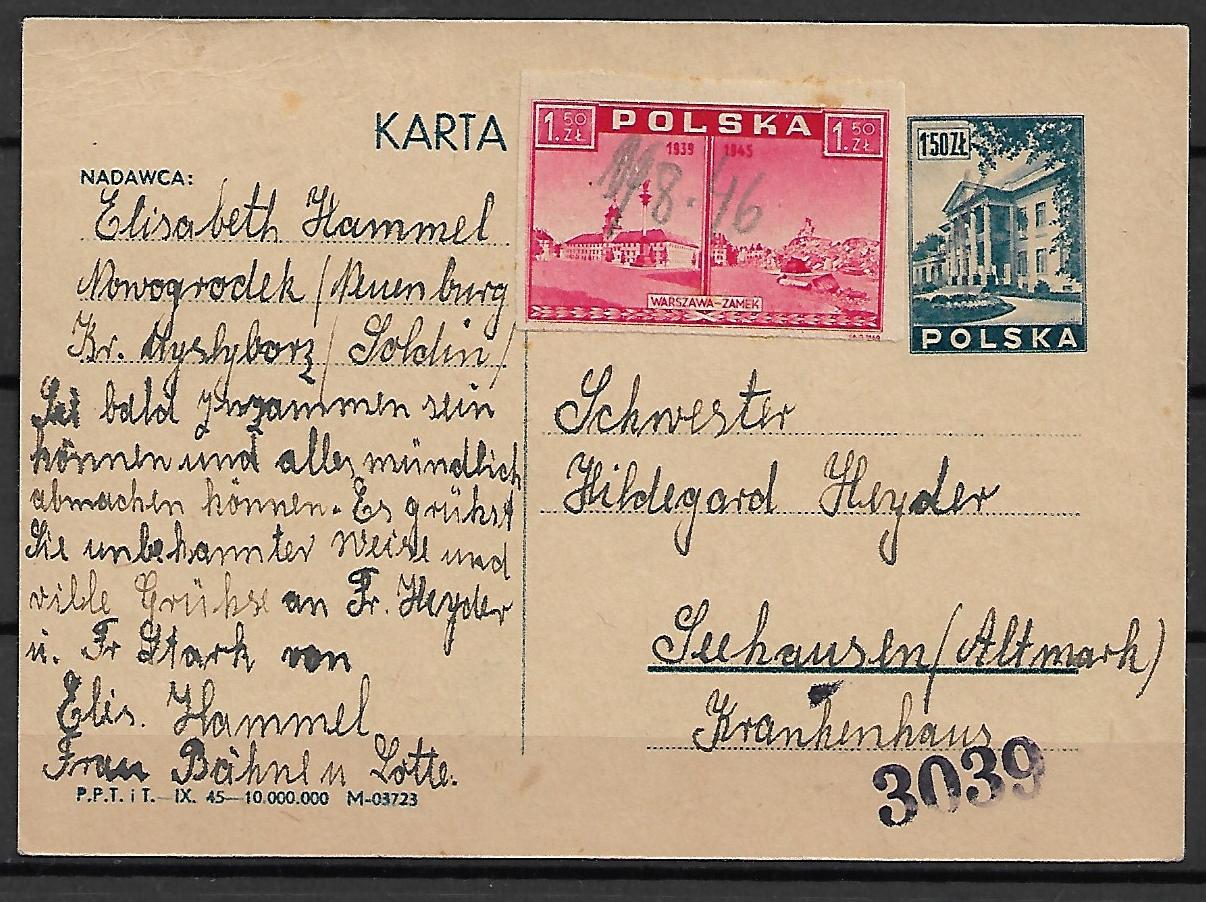 KARTA
NADAWCA:
Elisabeth Hammel
Nowogrodek / Neuenburg
Kr. Myslyborz / Soldin /
bald zuzammen sein
können und alles mündlich
abmachen können. Es grühst
Sie unbekannter Weise und
viele Grühse an Fr. Heyder
u. Fr Stark von
Elis. Hammel
Frau Bähne u Lotte.
P.P.T. i T.—IX. 45—10.000.000 M-03723
1.50 ZŁ POLSKA 1.50 ZŁ
1939 1945
8.46
WARSZAWA-ZAMEK
150 ZŁ
POLSKA
Schwester
Hildegard Heyder
Seehausen (Altmark)
Krankenhaus
3039